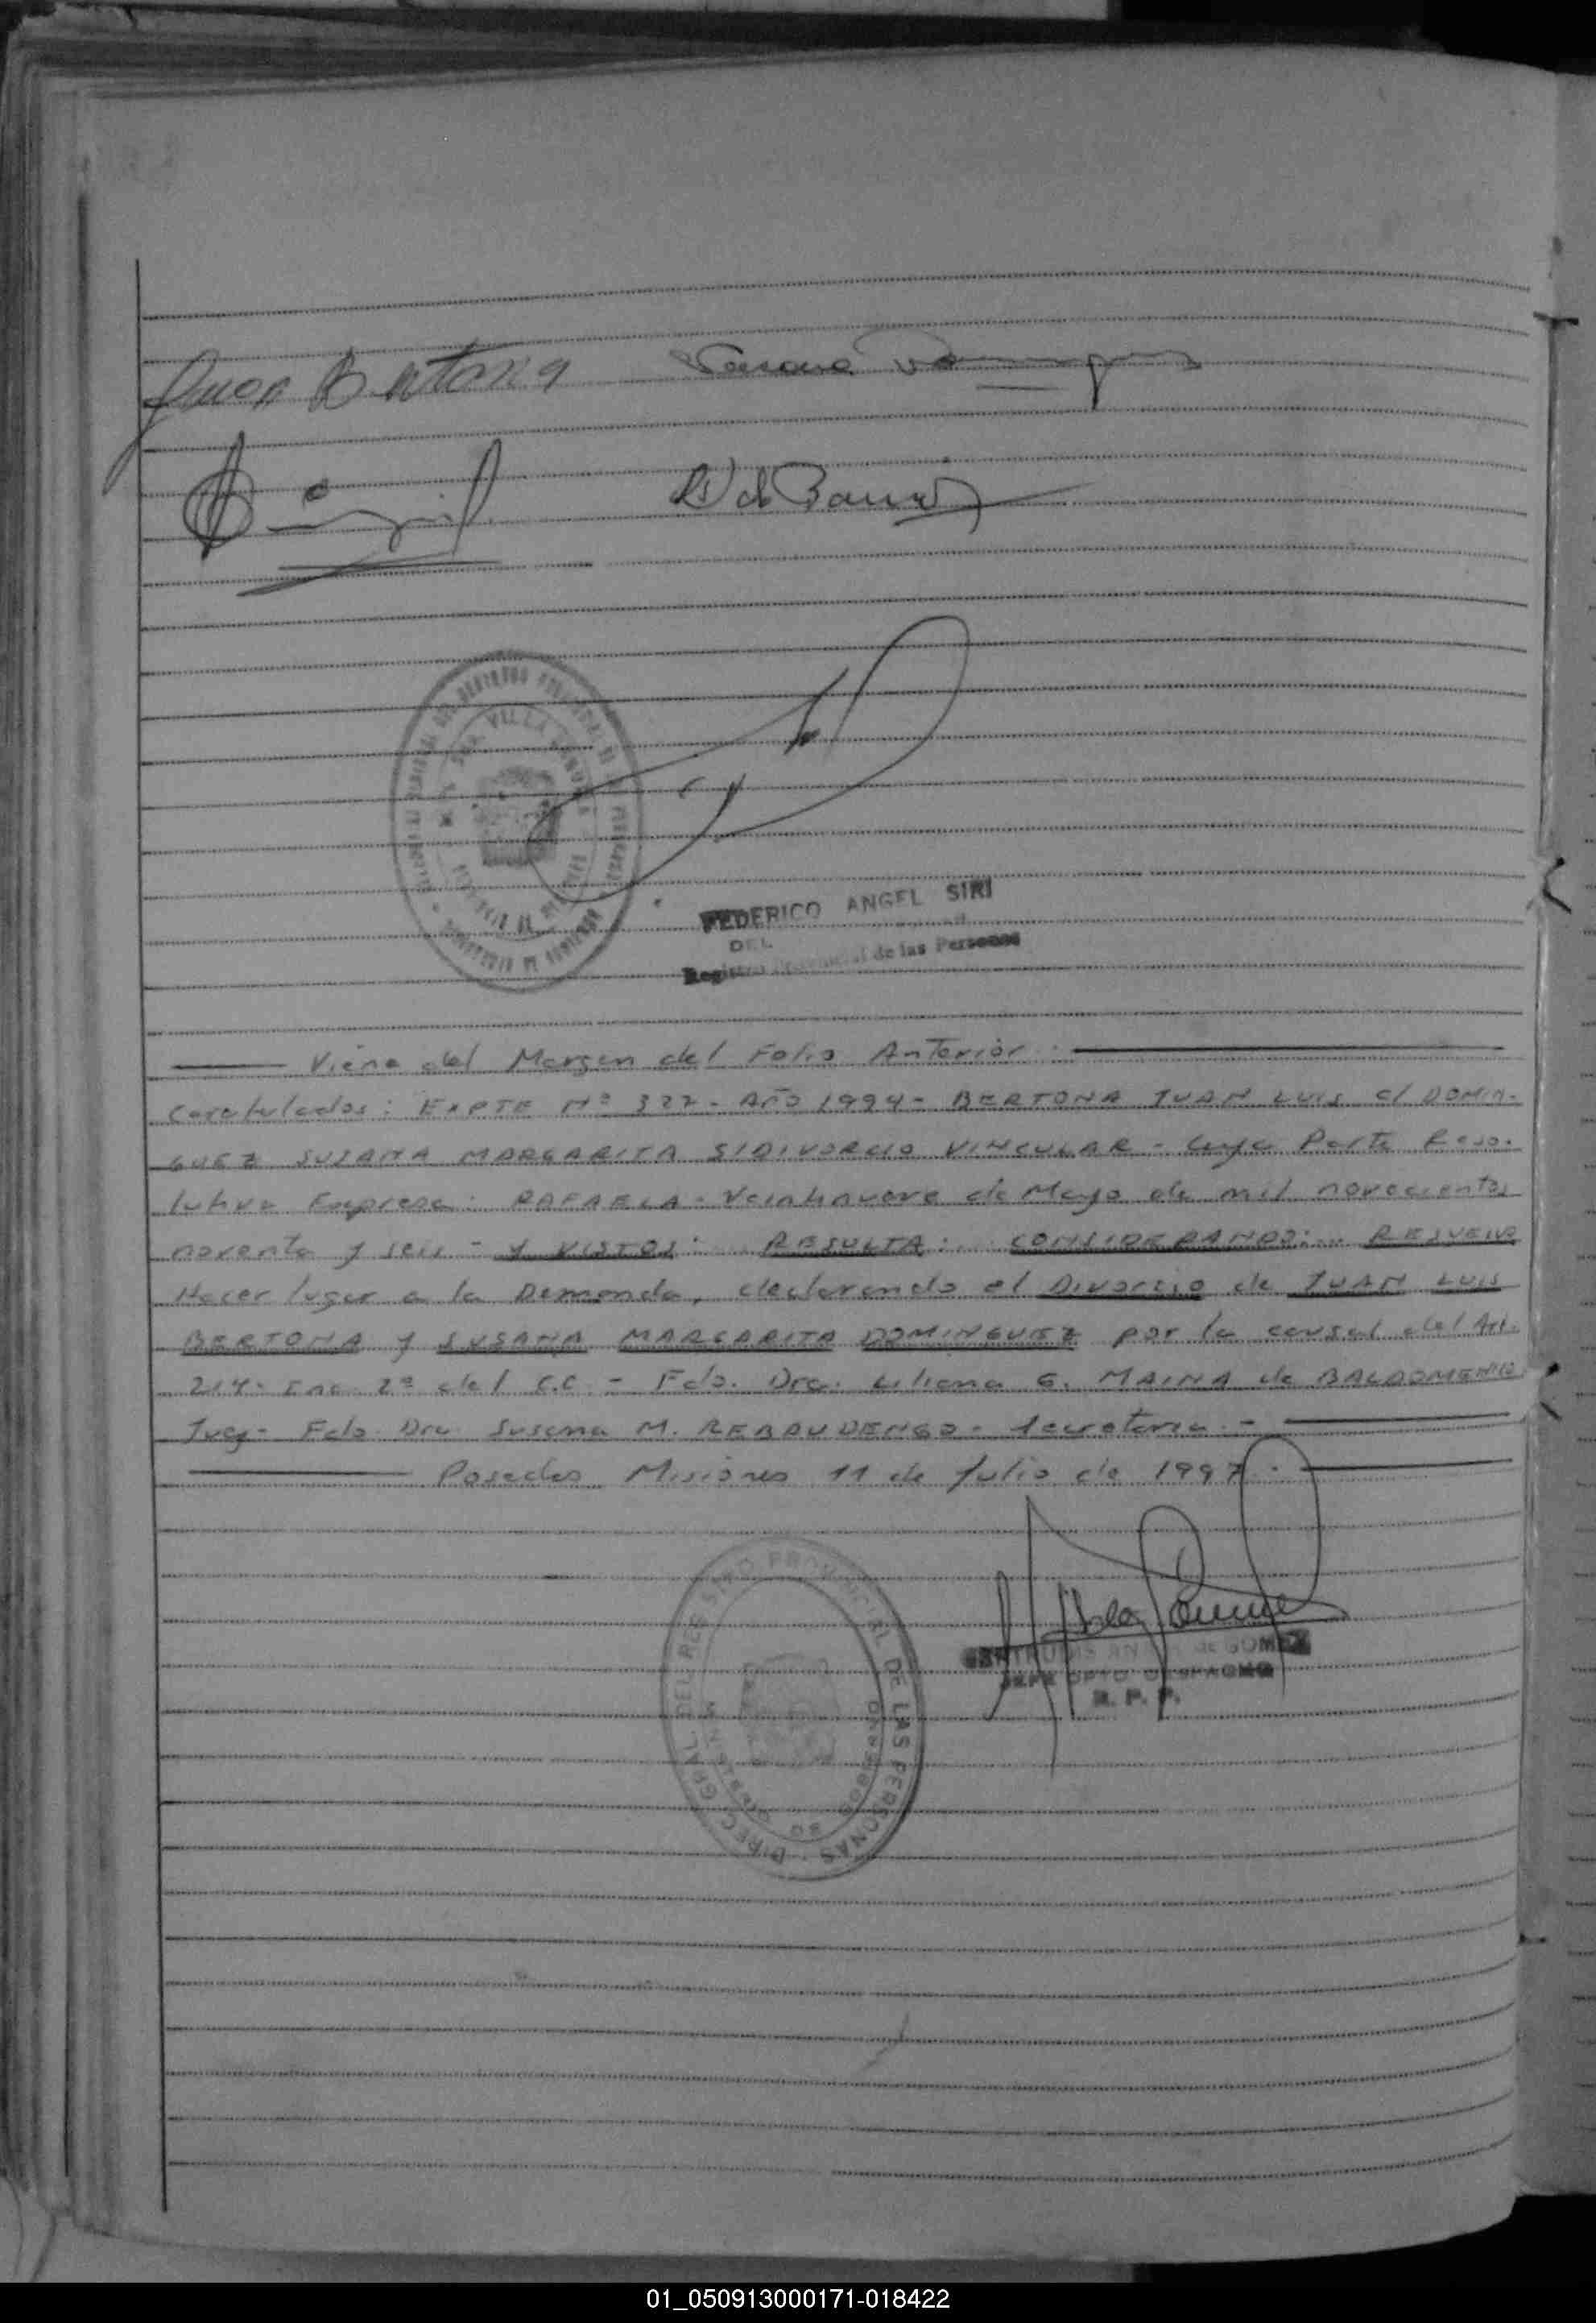 Juan Bertona
FEDERICO ANGEL SIRI
DEL
Registro Provincial de las Personas
Viene del Margen del Folio Anterior.
Caratulados: EXPTE Nº 327- Año 1994- BERTONA JUAN LUIS c/ DOMIN-
GUEZ SUSANA MARGARITA S/DIVORCIO VINCULAR- Cuya Parte Reso-
lutiva Expresa: RAFAELA- Veintinueve de Mayo de mil novecientos
noventa y seis - Y VISTOS: RESULTA: CONSIDERANDO:.. RESUELVO
Hacer lugar a la Demanda, declarando el Divorcio de JUAN LUIS
BERTONA y SUSANA MARGARITA DOMINGUEZ por la causal del Art.
214- Inc. 2º del C.C. - Fdo. Dra. Liliana G. MAINA de BALDOMENICO
Juez- Fdo. Dra. Susana M. REBAUDENGO- Secretaria.-
Posadas Misiones 11 de Julio de 1997.
DIREC. GRAL. DEL REGISTRO PROVINCIAL DE LAS PERSONAS
DE GOMEZ
JEFE DPTO DESPACHO
R. P. P.
01_050913000171-018422